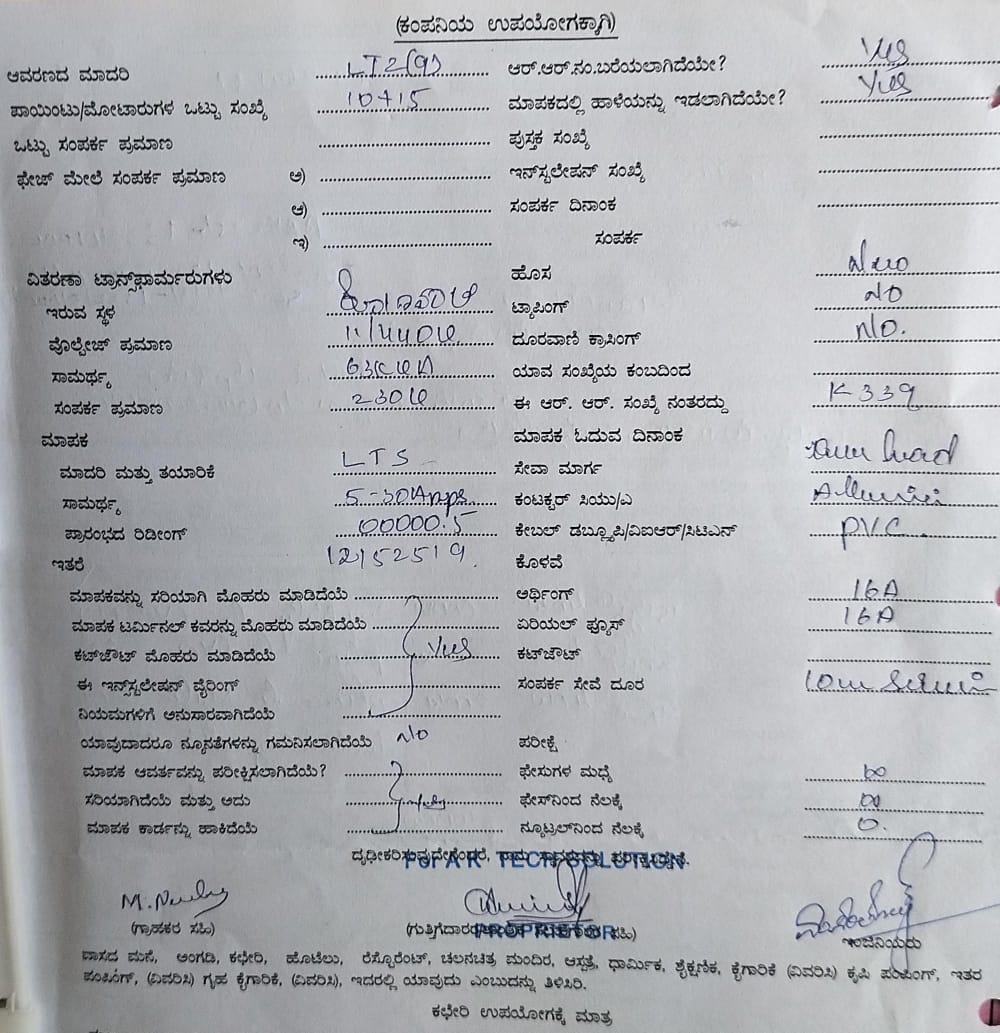 (ಕಂಪನಿಯ ಉಪಯೋಗಕ್ಕಾಗಿ)
ಆವರಣದ ಮಾದರಿ LT2(a) ಆರ್.ಆರ್.ನಂ.ಬರೆಯಲಾಗಿದೆಯೇ? Yes
ಪಾಯಿಂಟು/ಮೋಟಾರುಗಳ ಒಟ್ಟು ಸಂಖ್ಯೆ 10+15 ಮಾಪಕದಲ್ಲಿ ಹಾಳೆಯನ್ನು ಇಡಲಾಗಿದೆಯೇ? Yes
ಒಟ್ಟು ಸಂಪರ್ಕ ಪ್ರಮಾಣ ಪುಸ್ತಕ ಸಂಖ್ಯೆ
ಫೇಜ್ ಮೇಲೆ ಸಂಪರ್ಕ ಪ್ರಮಾಣ ಅ) ಇನ್‌ಸ್ಟಲೇಷನ್ ಸಂಖ್ಯೆ
ಆ) ಸಂಪರ್ಕ ದಿನಾಂಕ
ಇ) ಸಂಪರ್ಕ
ವಿತರಣಾ ಟ್ರಾನ್ಸ್‌ಫಾರ್ಮರುಗಳು ಹೊಸ New
ಇರುವ ಸ್ಥಳ ಟ್ಯಾಪಿಂಗ್ NO
ವೊಲ್ಟೇಜ್ ಪ್ರಮಾಣ 11/440V ದೂರವಾಣಿ ಕ್ರಾಸಿಂಗ್ NO.
ಸಾಮರ್ಥ್ಯ 63KVA ಯಾವ ಸಂಖ್ಯೆಯ ಕಂಬದಿಂದ
ಸಂಪರ್ಕ ಪ್ರಮಾಣ 230V ಈ ಆರ್. ಆರ್. ಸಂಖ್ಯೆ ನಂತರದ್ದು K339
ಮಾಪಕ ಮಾಪಕ ಓದುವ ದಿನಾಂಕ
ಮಾದರಿ ಮತ್ತು ತಯಾರಿಕೆ LTS ಸೇವಾ ಮಾರ್ಗ Over head
ಸಾಮರ್ಥ್ಯ 5-30Amps ಕಂಟಕ್ಟರ್ ಸಿಯು/ಎ
ಪ್ರಾರಂಭದ ರಿಡೀಂಗ್ 00000.5 ಕೇಬಲ್ ಡಬ್ಲ್ಯೂಪಿ/ವಿಐಆರ್/ಸಿಟಿಎನ್ PVC
ಇತರೆ 12152519. ಕೊಳವೆ
ಮಾಪಕವನ್ನು ಸರಿಯಾಗಿ ಮೊಹರು ಮಾಡಿದೆಯೆ ಅರ್ಥಿಂಗ್ 16A
ಮಾಪಕ ಟರ್ಮಿನಲ್ ಕವರನ್ನು ಮೊಹರು ಮಾಡಿದೆಯೆ ಏರಿಯಲ್ ಫ್ಯೂಸ್ 16A
ಕಟ್‌ಜೌಟ್ ಮೊಹರು ಮಾಡಿದೆಯೆ Yes ಕಟ್‌ಜೌಟ್
ಈ ಇನ್ಸ್‌ಸ್ಟಲೇಷನ್ ವೈರಿಂಗ್ ಸಂಪರ್ಕ ಸೇವೆ ದೂರ 10m
ನಿಯಮಗಳಿಗೆ ಅನುಸಾರವಾಗಿದೆಯೆ
ಯಾವುದಾದರೂ ನ್ಯೂನತೆಗಳನ್ನು ಗಮನಿಸಲಾಗಿದೆಯೆ NO ಪರೀಕ್ಷೆ
ಮಾಪಕ ಆವರ್ತವನ್ನು ಪರೀಕ್ಷಿಸಲಾಗಿದೆಯೆ? ಫೇಸುಗಳ ಮಧ್ಯೆ ∞
ಸರಿಯಾಗಿದೆಯೆ ಮತ್ತು ಅದು ಫೇಸ್‌ನಿಂದ ನೆಲಕ್ಕೆ ∞
ಮಾಪಕ ಕಾರ್ಡನ್ನು ಹಾಕಿದೆಯೆ ನ್ಯೂಟ್ರಲ್‌ನಿಂದ ನೆಲಕ್ಕೆ 0.
TECH SOLUTION
(ಗ್ರಾಹಕರ ಸಹಿ) PROPRIETOR ಸಹಿ) ಇಂಜಿನಿಯರು
ವಾಸದ ಮನೆ, ಅಂಗಡಿ, ಕಛೇರಿ, ಹೋಟೆಲು, ರೆಸ್ಟೋರೆಂಟ್, ಚಲನಚಿತ್ರ ಮಂದಿರ, ಆಸ್ಪತ್ರೆ, ಧಾರ್ಮಿಕ, ಶೈಕ್ಷಣಿಕ, ಕೈಗಾರಿಕೆ (ವಿವರಿಸಿ) ಕೃಷಿ ಪಂಪಿಂಗ್, ಇತರ
ಪಂಪಿಂಗ್, (ವಿವರಿಸಿ) ಗೃಹ ಕೈಗಾರಿಕೆ, (ವಿವರಿಸಿ), ಇದರಲ್ಲಿ ಯಾವುದು ಎಂಬುದನ್ನು ತಿಳಿಸಿರಿ.
ಕಛೇರಿ ಉಪಯೋಗಕ್ಕೆ ಮಾತ್ರ